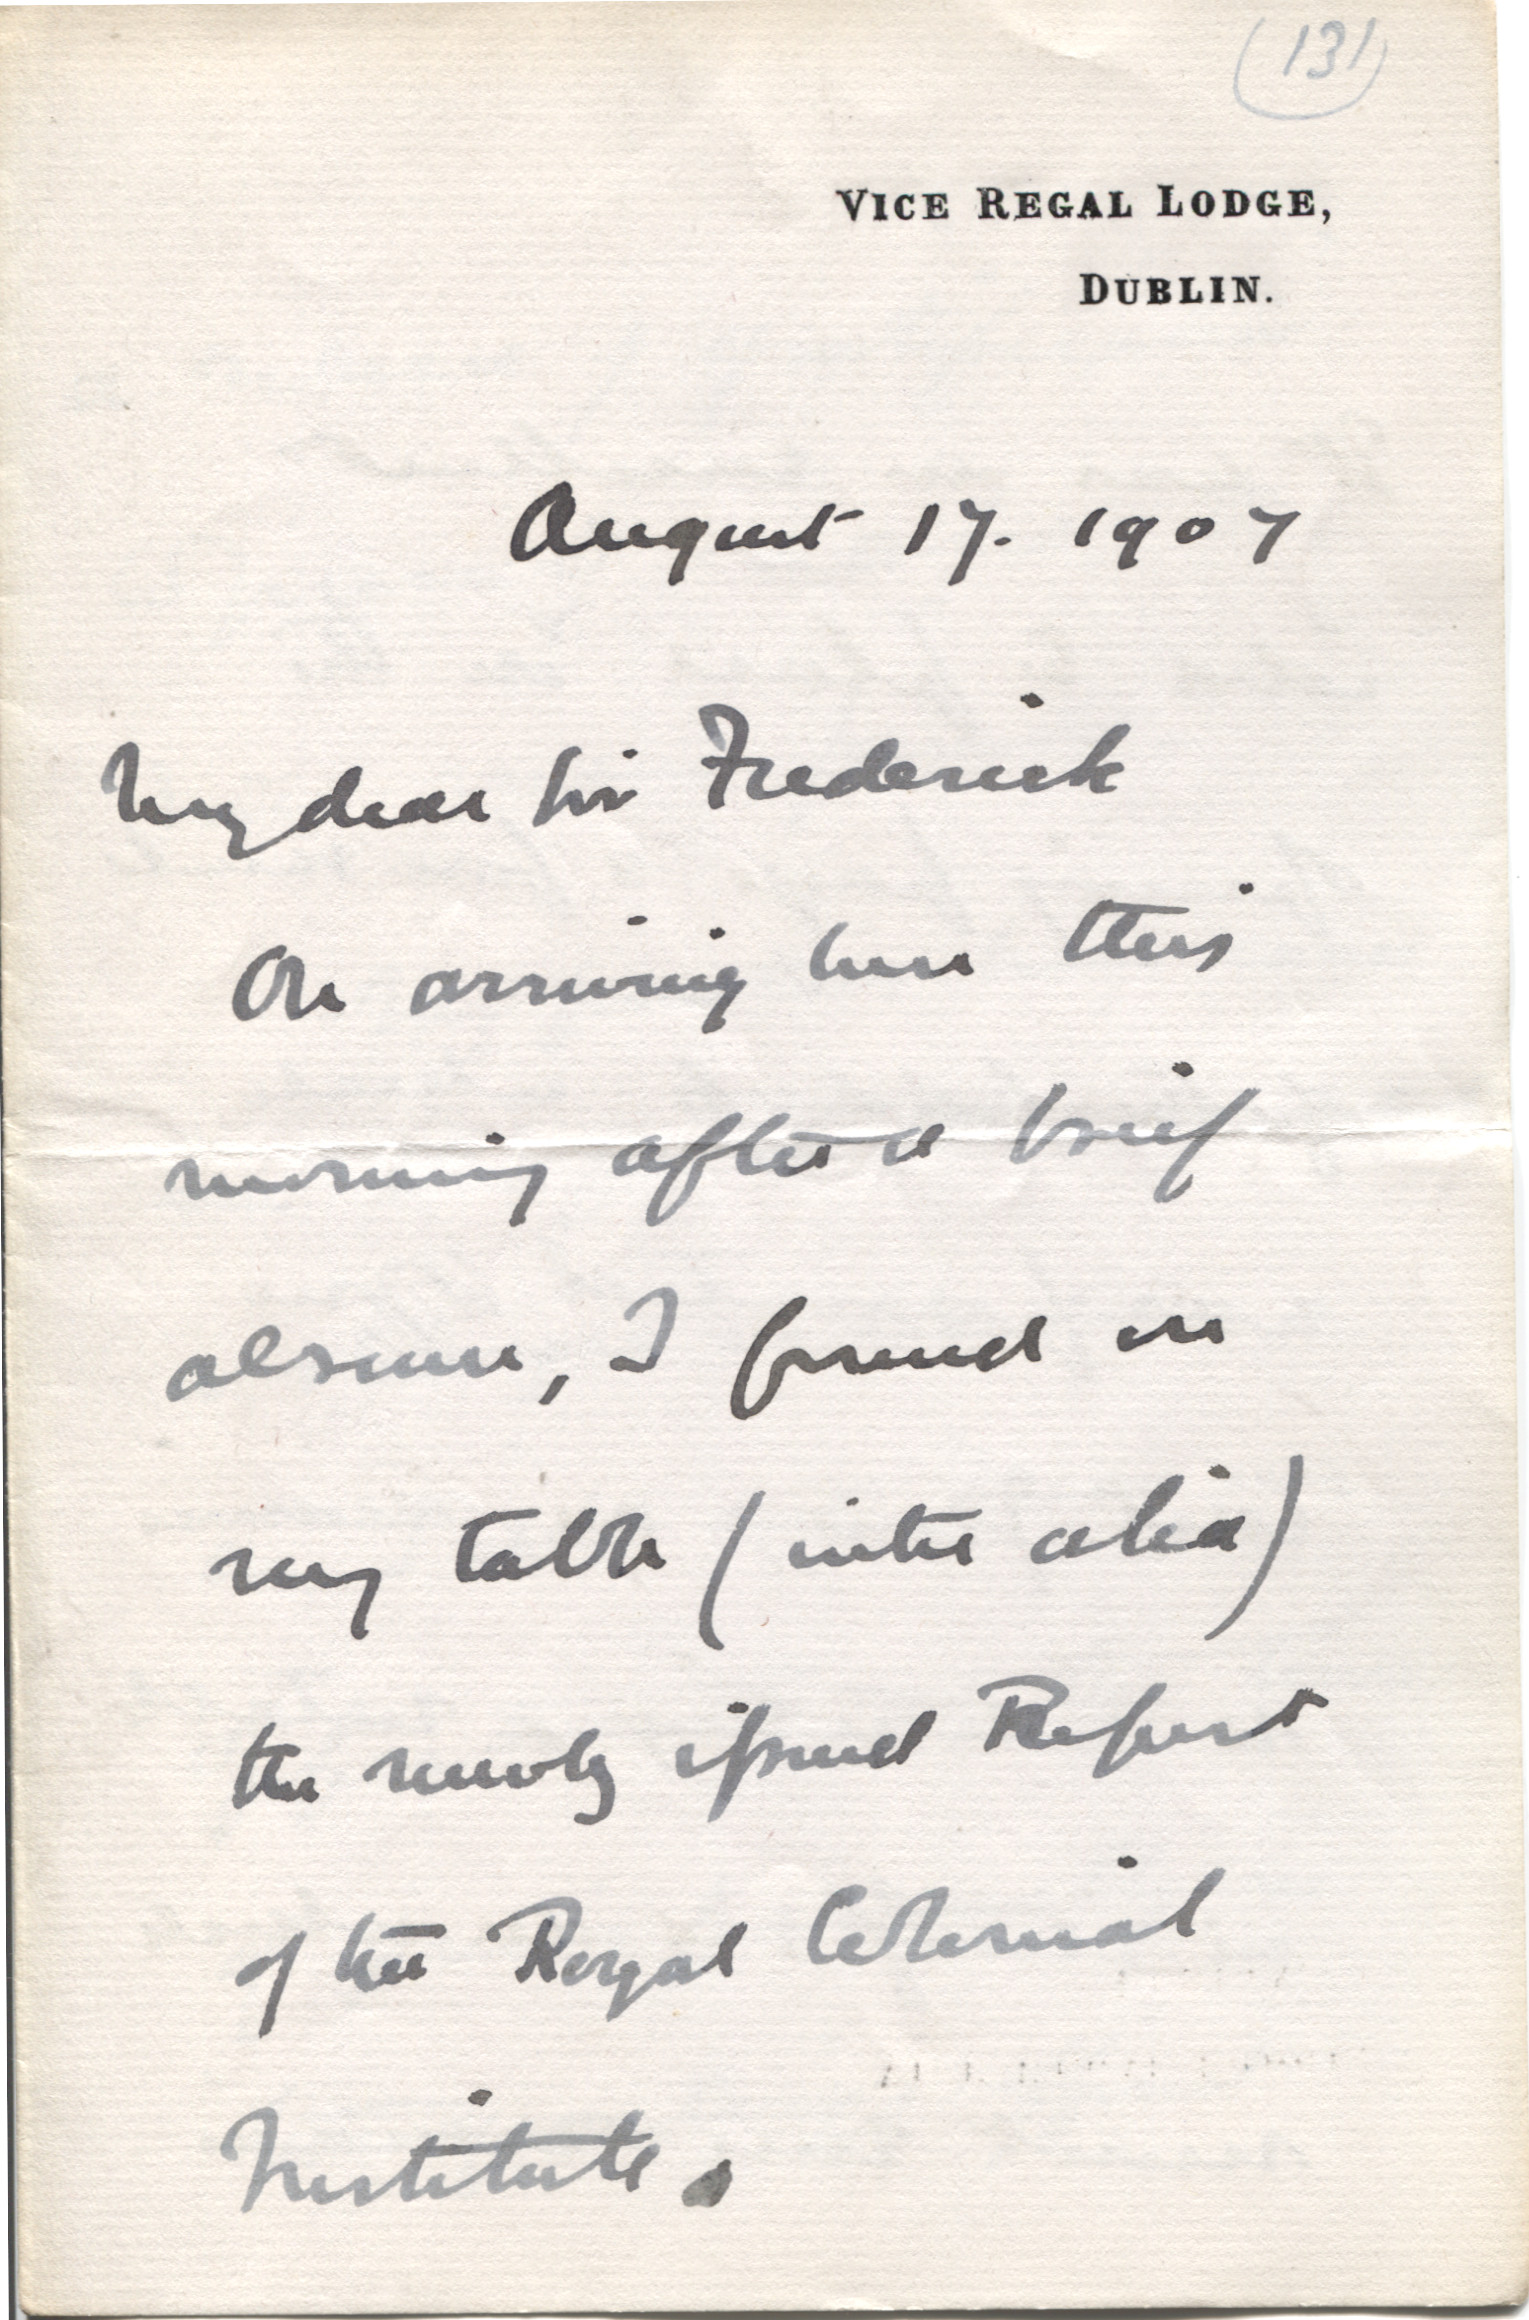 (131)
VICE REGAL LODGE,
DUBLIN.
August 17. 1907
My dear Sir Frederick
On arriving here this
morning after a brief
absence, I found on
my table (inter alia)
the newly issued Report
of the Royal Colonial
Institute.